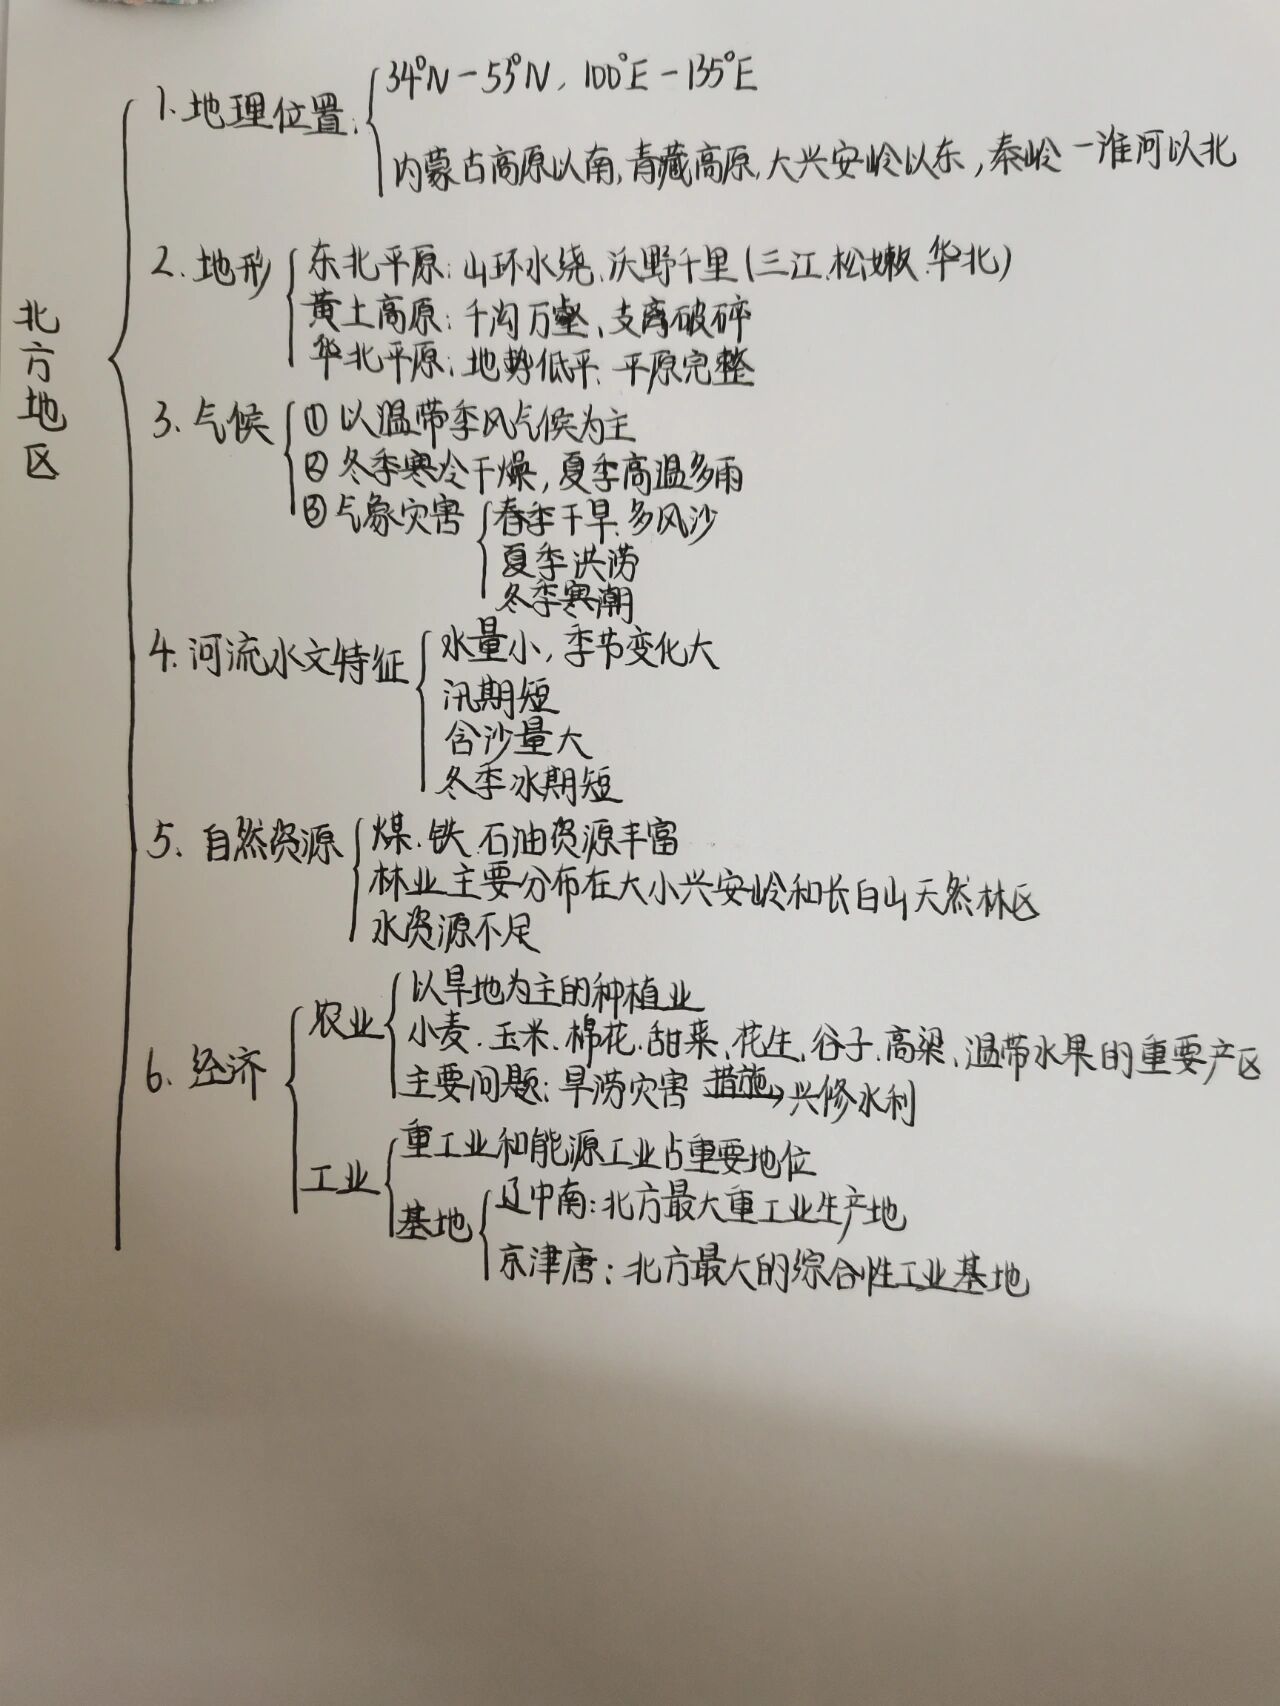 北方地区
1. 地理位置:
34°N-53°N, 100°E-135°E
内蒙古高原以南,青藏高原,大兴安岭以东,秦岭一淮河以北
2. 地形
东北平原:山环水绕、沃野千里(三江、松嫩、华北)
黄土高原:千沟万壑、支离破碎
华北平原:地势低平、平原完整
3. 气候
①以温带季风气候为主
②冬季寒冷干燥,夏季高温多雨
③气象灾害
春季干旱、多风沙
夏季洪涝
冬季寒潮
4. 河流水文特征
水量小,季节变化大
汛期短
含沙量大
冬季冰期短
5、自然资源
煤、铁、石油资源丰富
林业主要分布在大小兴安岭和长白山天然林区
水资源不足
6、经济
农业
以旱地为主的种植业
小麦、玉米、棉花、甜菜、花生、谷子、高粱、温带水果的重要产区
主要问题:旱涝灾害 措施→兴修水利
工业
重工业和能源工业占重要地位
基地
辽中南:北方最大重工业生产地
京津唐:北方最大的综合性工业基地